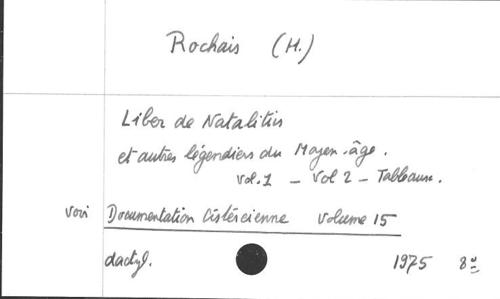 Rochais (H.)
Liber de Natalitiis
et autres légendiers du Moyen-âge.
Vol.1 - Vol 2 - Tableaux.
voir Documentation Cistercienne Volume 15
dactyl. 1975 8°